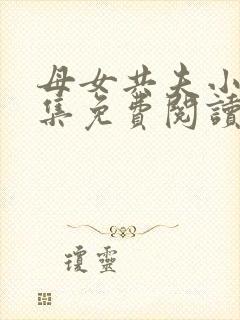 母女共夫小
集免費閱讀
瓊靈